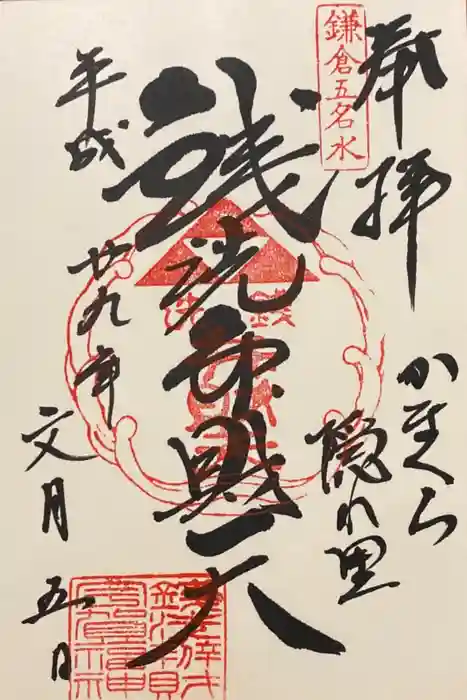 奉拝
鎌倉五名水
かまくら
隠れ里
銭洗弁財天
平成
廿九年
文月
五日